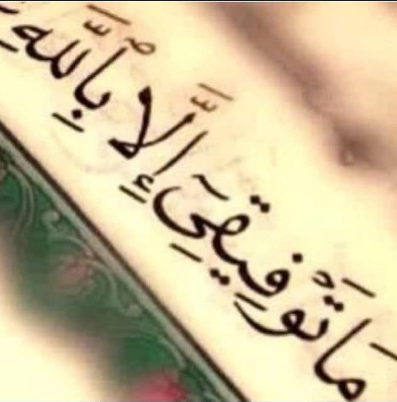 مَا تَوْفِيقِىٓ إِلَّا بِٱللَّهِ